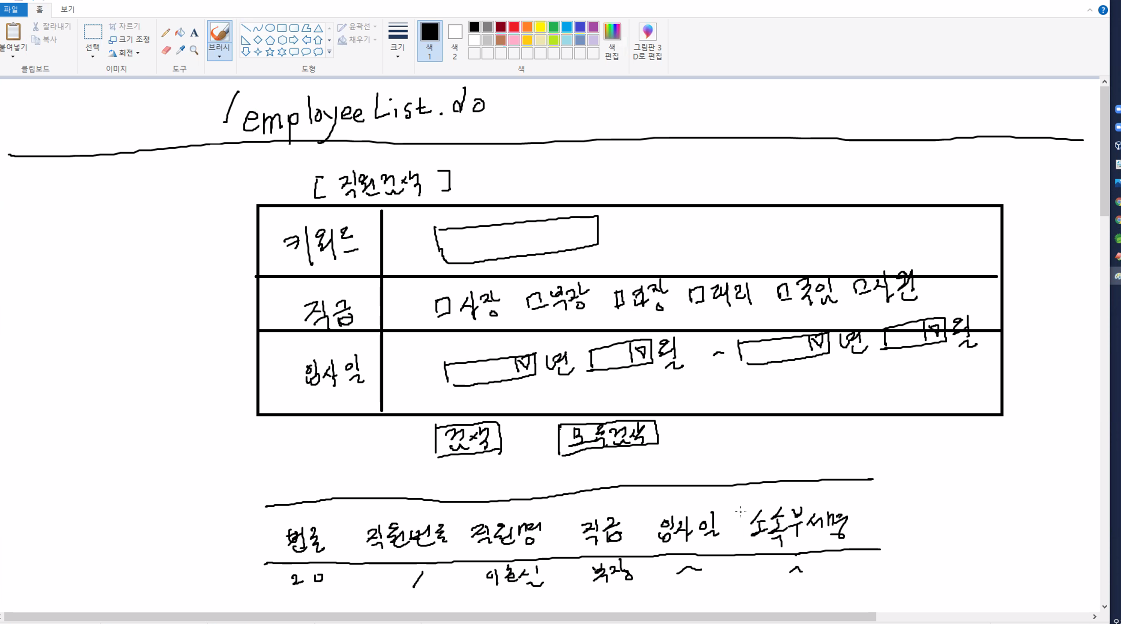 파일 홈 보기
붙여넣기 잘라내기 복사 선택 자르기 크기 조정 회전 브러시 윤곽선 채우기 크기 색 1 색 2 색 편집 그림판 3D로 편집
클립보드 이미지 도구 도형 색
/employeeList.do
[직원검색]
키워드
직급 사장 부장 과장 대리 주임 사원
입사일 년 월 ~ 년 월
검색 모두검색
번호 직원번호 직원명 직급 입사일 소속부서명
20 1 이순신 부장 ~ ^